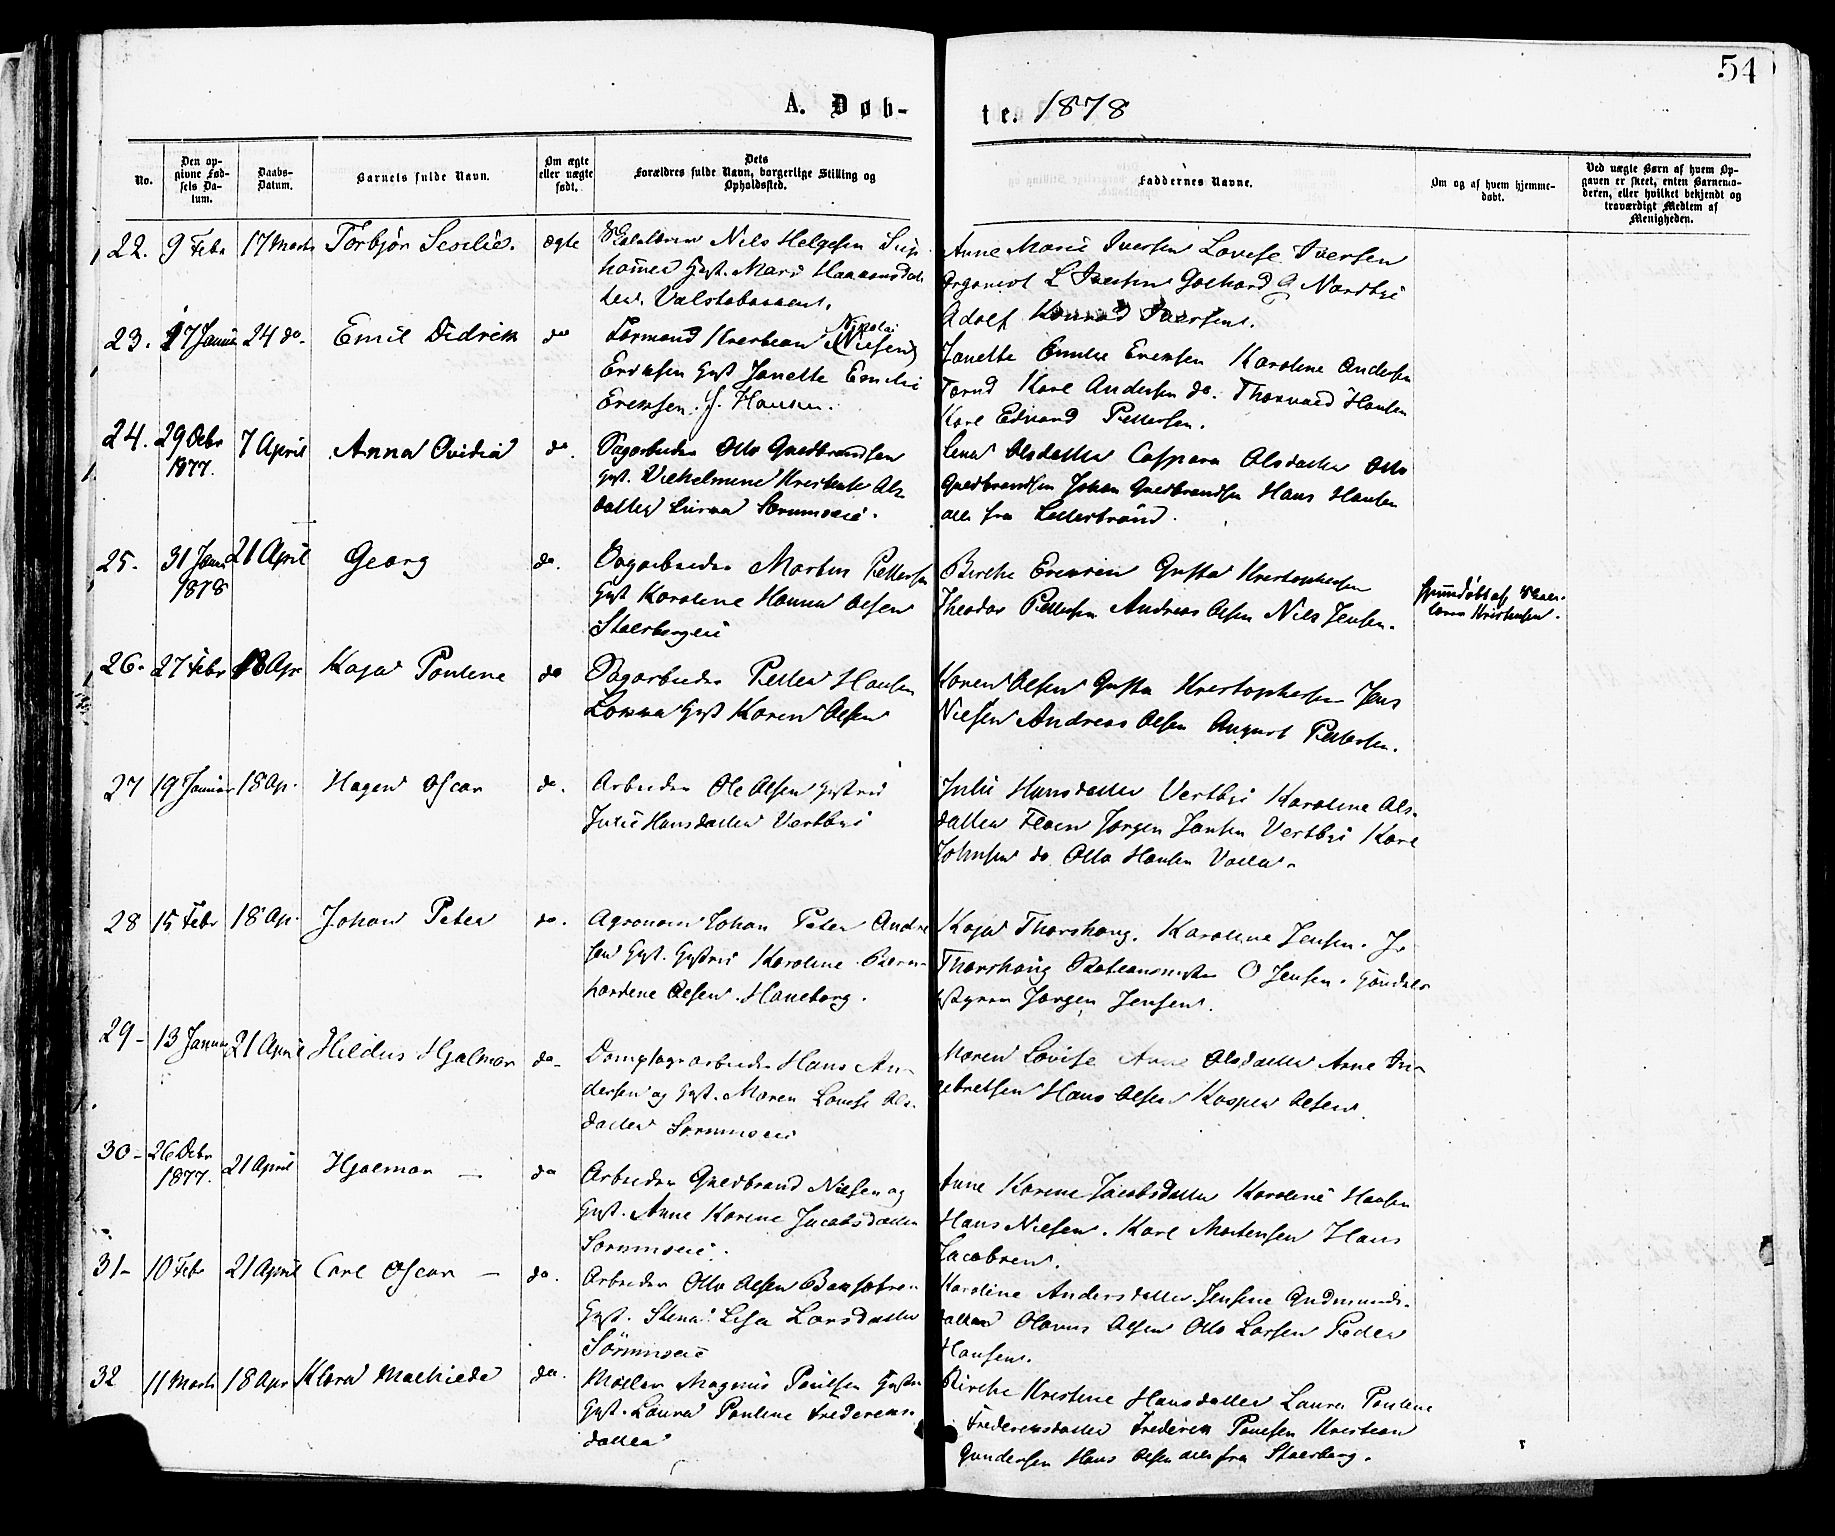 54
A. Døb-
te. 1878
No.
Den op-
givne Fød-
sels Da-
tum.
Daabs-
Datum.
Barnets fulde Navn.
Om ægte
eller uægte
født.
Dets
Forældres fulde Navn, borgerlige Stilling og
Opholdssted.
Faddernes Navne.
Om og af hvem hjemme-
døbt.
Ved uægte Børn af hvem Op-
gaven er skeet, enten Barnemo-
deren, eller hvilket bekjendt og
troværdigt Medlem af
Menigheden.
22. 9 Febr 17 Marts Torbjør ægte
Nils Helgesen
Gst. Mari
Anne Marie Iversen Lovise Iversen
Organist L Iversen Gothard G Nordbye
Adolf Konrad Iversen.
23. 17 Januar 24 do. Emil Didrik do
Formand Kristian Nikolai Nielsen
Eriksen Gst Janette Emilie
Eriksen. f. Hansen.
Janette Emilie Eriksen Karoline Andersen
Karl Andersen do. Thorvald Hansen
Karl Edvard Pettersen.
24. 29 Octbr 1877. 7 April Anna Ovidia do.
Sagarbeider Otto Guldbrandsen
Gst. Vilhelmine Ols-
datter Sørumseie.
Olsdatter Caspara Olsdatter Otto
Guldbrandsen Johan Guldbrandsen Hans Hansen
alle fra Lillestrand.
25. 31 Janu 1878 21 April Georg do.
Sagarbeider Martin Pettersen
Gst Karoline Hanna Olsen
Stalsbergeie
Birthe Gusta Kristophersen
Theodor Pettersen Andreas Olsen Nils Jensen.
Hjemdøbt af
Kristensen.
26. 27 Febr 18 Apr Kaja Pauline do
Sagarbeider Petter Hansen
Gst Karen Olsen
Karen Olsen Gusta Kristophersen Jens
Nielsen Andreas Olsen August Pettersen.
27 19 Januar 18 Ap. Hagen Oscar do.
Arbeider Ole Olsen Hustru
Julie Hansdatter Vestbyi
Julie Hansdatter Vestbyi Karoline Ols-
datter Jørgen Jansen Vestbyi Karl
Johnsen do. Otto Hansen
28 15 Febr 18 Ap. Johan Peter do.
Agronom Johan Peter Andre
sen Gst. Hustru Karoline Bern-
hardine Olsen Haneborg.
Kaja Thorshaug. Karoline Jensen. J
Thorshaug O Jensen.
Jørgen Jensen.
29- 13 Januar 21 April Hildus Hjalmar do-
Dampsagarbeider Hans An-
dersen og Gst. Maren Lovise Ols-
datter Sørumseie
Maren Lovise Olsdatter Anne In-
gebretsen Hans Olsen Kasper Olsen.
30- 26 Debr 1877. 21 April Hjalmar — do
Arbeider Guldbrand Nielsen og
Gst. Anne Karine Jacobsdatter
Sørumseie.
Anne Karine Jacobsdatter Karoline Hansen
Hans Nielsen. Karl Mortensen Hans
Jacobsen.
31- 10 Febr 21 April Carl Oscar — do.
Arbeider Otto Olsen
Gst. Stina Lisa Larsdatter
Sørumseie
Karoline Andersdatter. Jensine Gudmunds-
datter Olavus Olsen Otto Larsen Peder
Hansen.
32 11 Marts 18 Apr Klara Mathilde do.
Møller Magnus Paulsen
Gst. Laura Pauline Frederiks-
datter
Birthe Kristine Hansdatter Laura Pauline
Frederiksdatter Frederik Paulsen Kristian
Gundersen Hans Olsen alle fra Stalsberg.